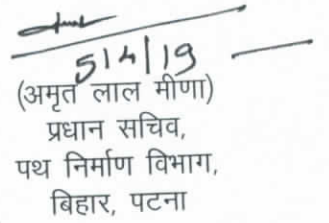 5/4/19
(अमृत लाल मीणा)
प्रधान सचिव,
पथ निर्माण विभाग,
बिहार, पटना